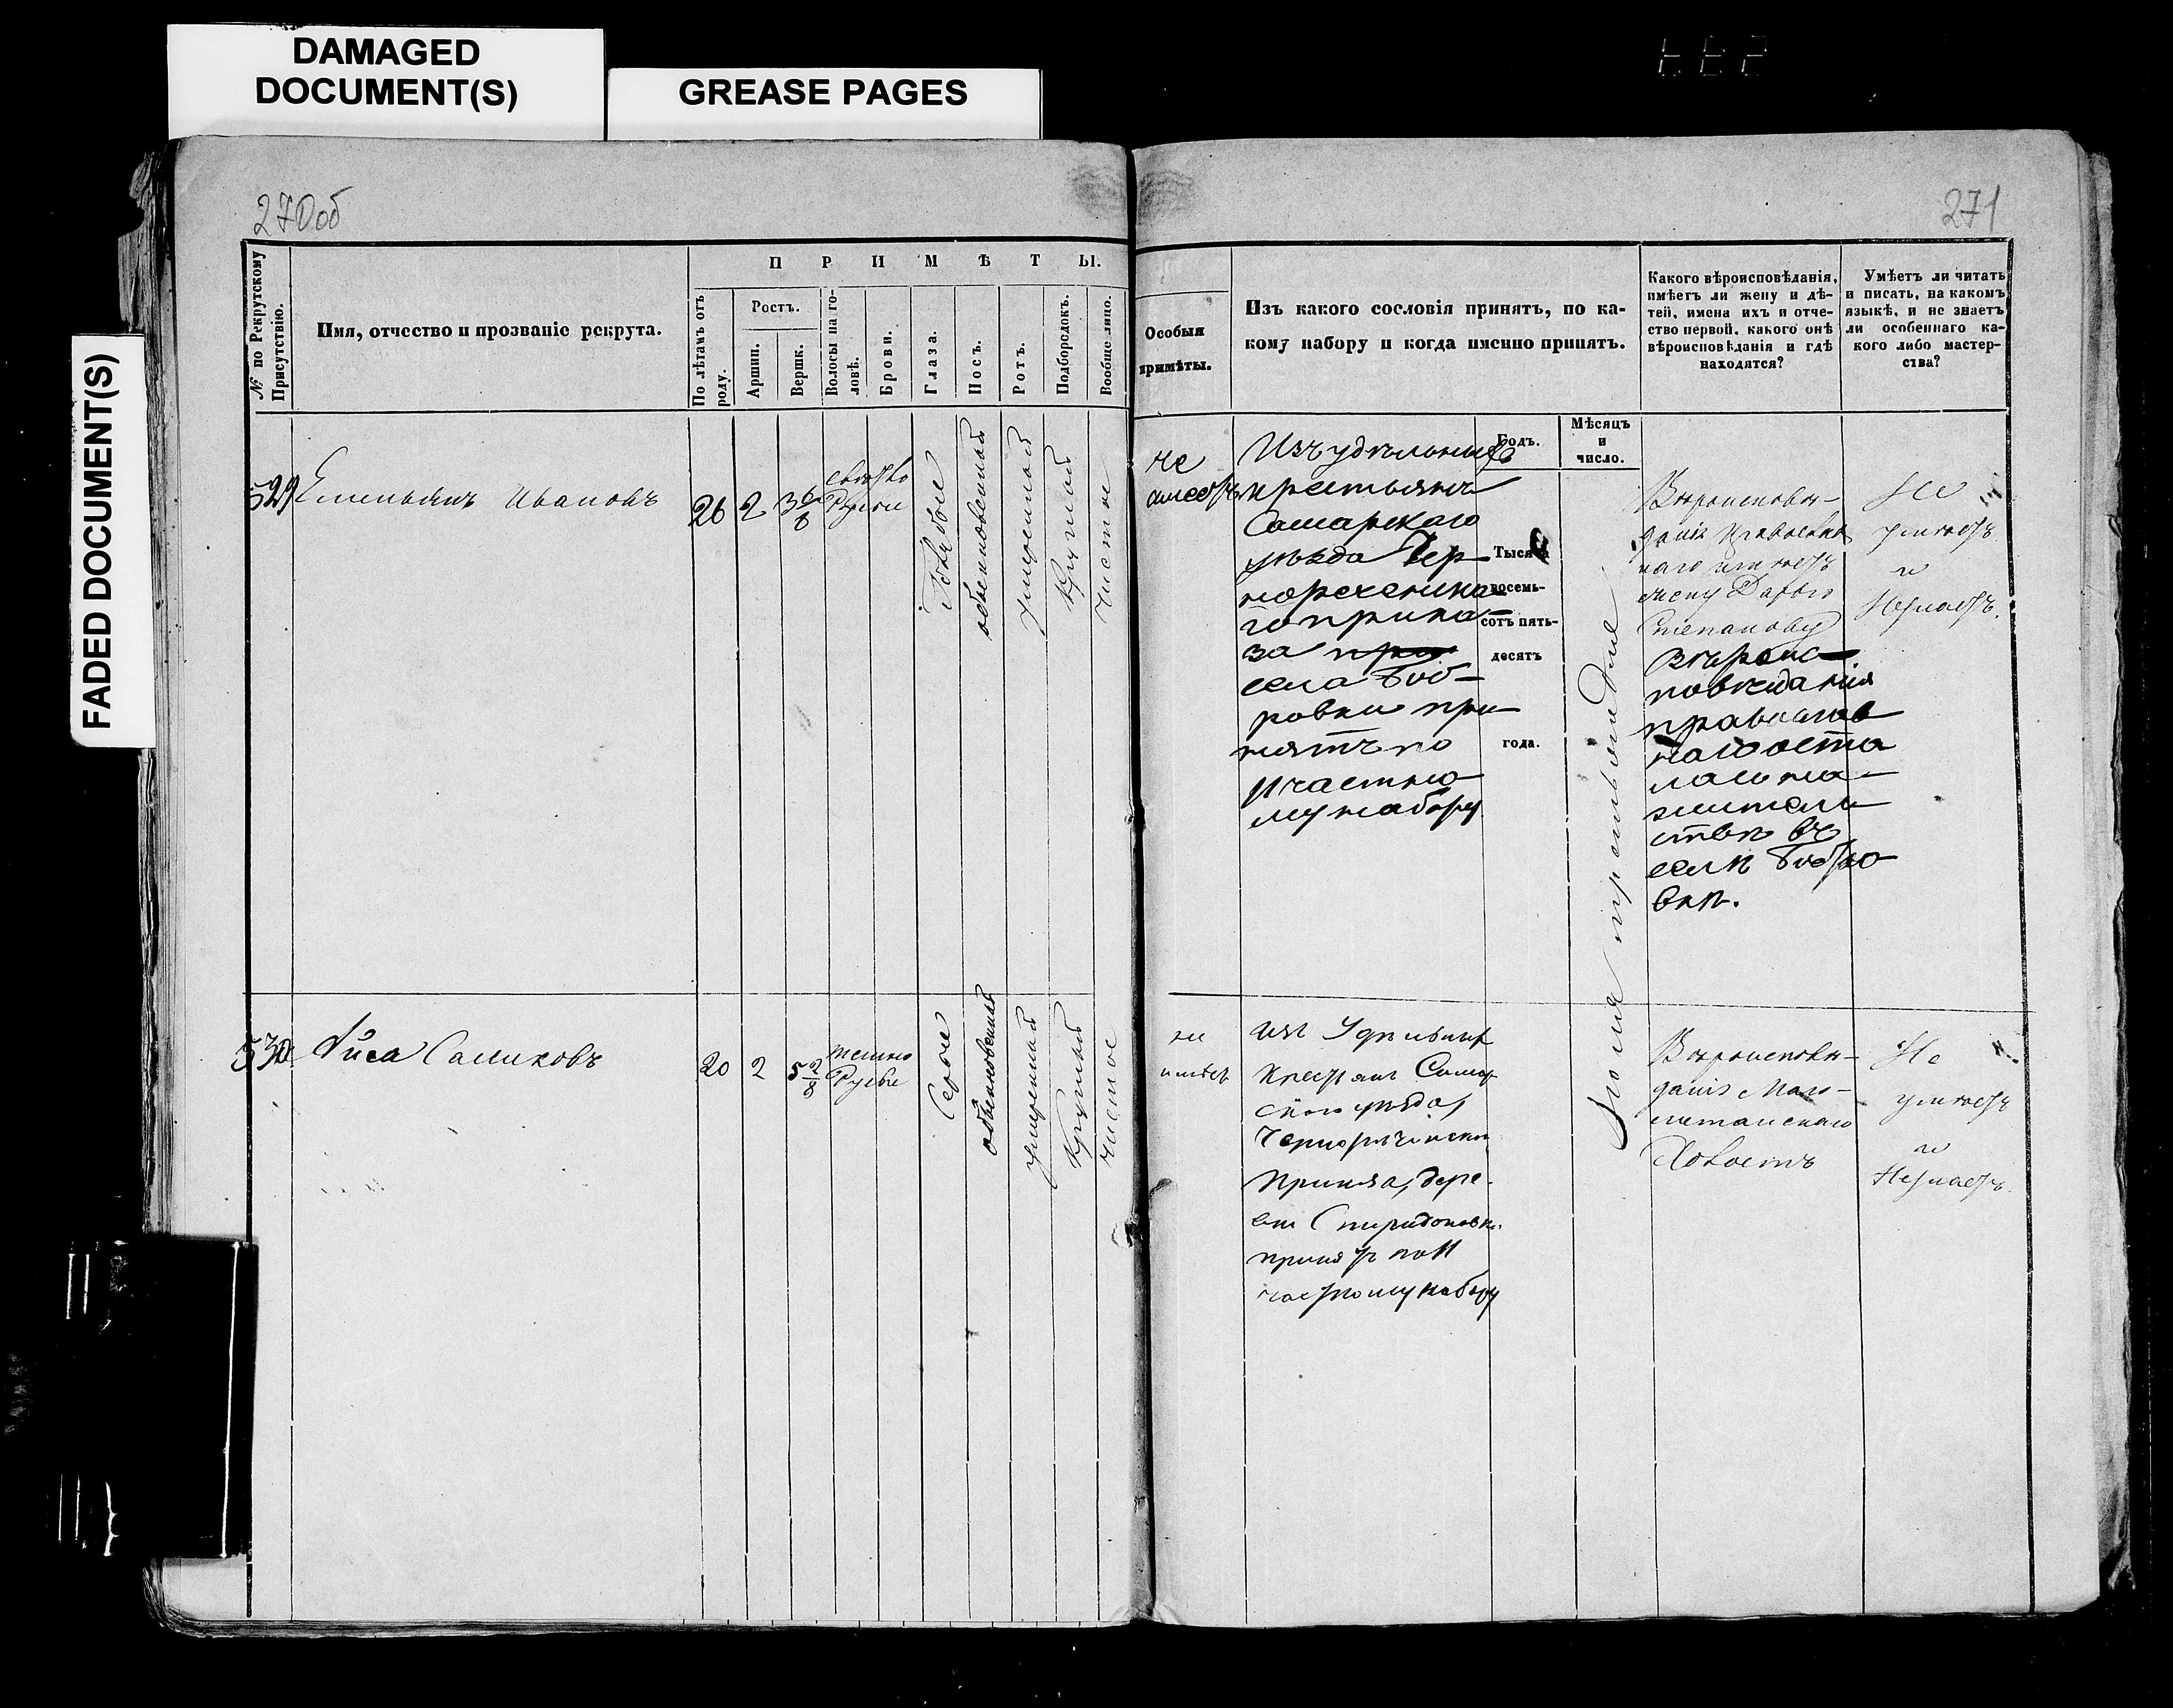 DAMAGED
DOCUMENT(S)
GREASE PAGES
FADED DOCUMENT(S)
270об
271
№ по Рекрутскому
Присутствію.
Имя, отчество и прозваніе рекрута.
ПРИМѢТЫ.
По лѣтамъ отъ
роду.
Ростъ.
Аршин.
Вершк.
Волосы на го-
ловѣ.
Брови.
Глаза.
Носъ.
Ротъ.
Подбородокъ.
Вообще лицо.
Особыя
примѣты.
Изъ какого сословія принятъ, по ка-
кому набору и когда именно принятъ.
Какого вѣроисповѣданія,
имѣетъ ли жену и дѣ-
тей, имена ихъ и отче-
ство первой, какого онѣ
вѣроисповѣданія и гдѣ
находятся?
Умѣетъ ли читать
и писать, на какомъ
языкѣ, и не знаетъ
ли особеннаго ка-
кого либо мастер-
ства?
Годъ.
Мѣсяцъ
и
число.
529
Емельянъ Ивановъ
26
2
3 6/8
свѣтло
Русые
Голубые
обыкновенной
умѣренной
Круглой
чистое
не
имеетъ
Изъ удѣльныхъ
крестьянъ
Самарскаго
уѣзда Чер-
нореченска-
го прика-
за
села Боб-
ровки при
нятъ по
участко-
му набору
Тысяча
восемь-
сотъ пять-
десятъ
года.
Іюля третьяго дня
Вѣроисповѣ-
данія Православ
наго имѣетъ
жену Дарью
Степанову
вѣроис-
повѣданія
православ
наго оста
лась на
жителъ
ствѣ въ
селѣ Бобро
вкѣ.
Не
умѣетъ
и
Незнаетъ.
530
Иса Салиховъ
20
2
5 2/8
темно
Русые
Серые
обыкновенный
умѣренный
Круглый
чистое
не
имѣетъ
изъ Удѣльныхъ
Крестьянъ Самар
скаго уѣзда,
Чернорѣченска
Приказа, дере-
вни Спиридоновки.
принятъ по У
частковому набору
Вѣроисповѣ-
данія Маго-
метанскаго
Холостъ
Не
умѣетъ
и
Незнаетъ.